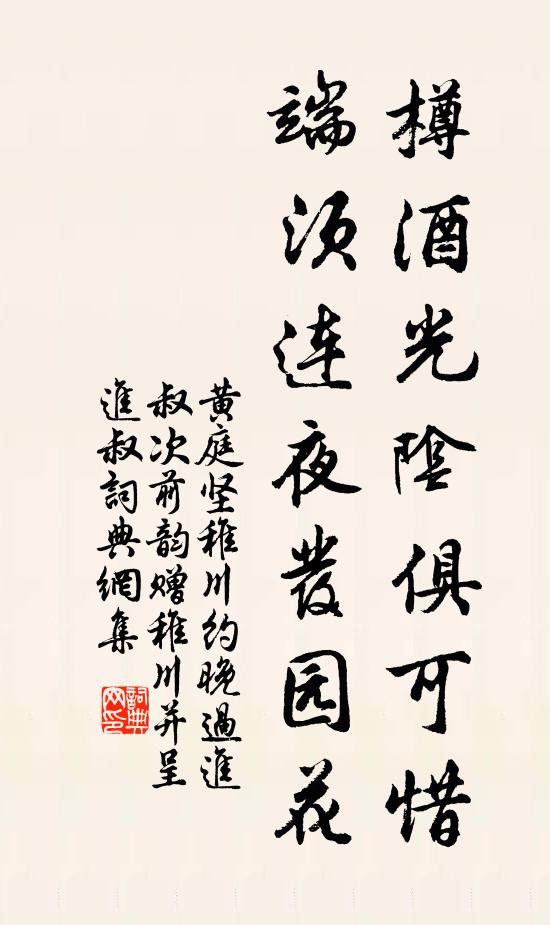 樽酒光陰俱可惜
端須连夜發园花
黄庭坚稚川约晚過進
叔次前韵赠稚川并呈
進叔詞典網集
詞典网印